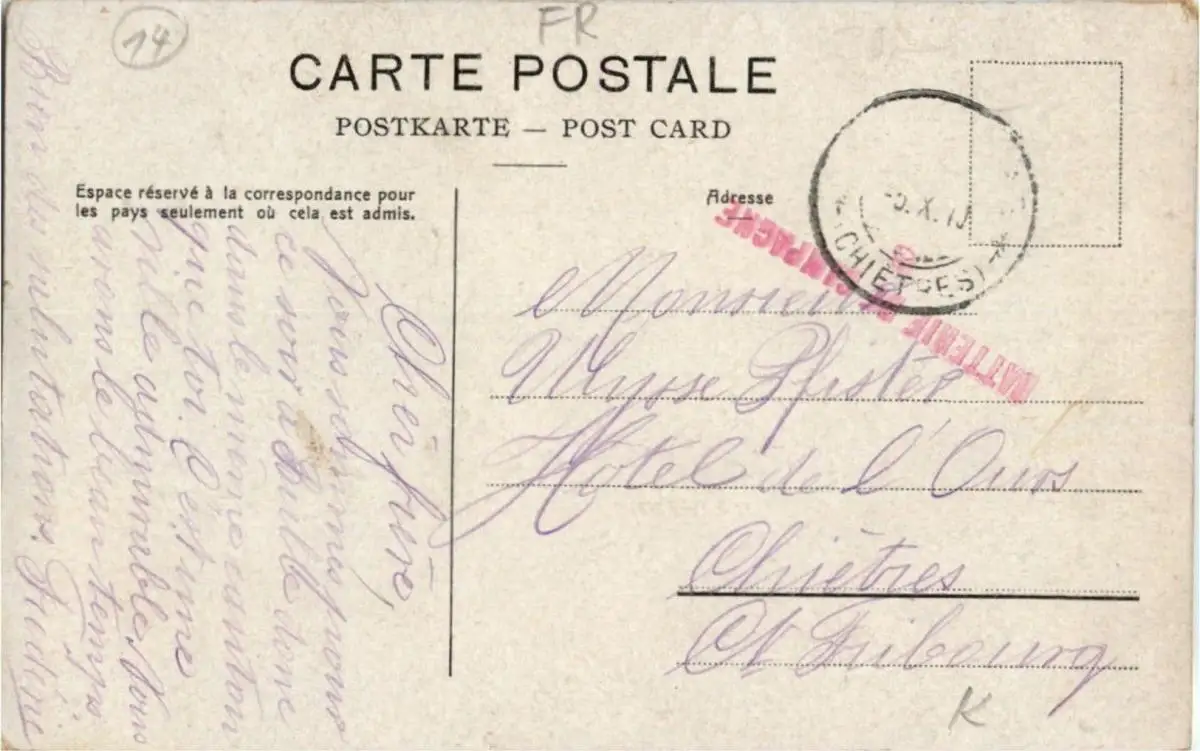 14
FR
CARTE POSTALE
POSTKARTE — POST CARD
Espace réservé à la correspondance pour
les pays seulement où cela est admis.
Adresse
X. 1
(CHIÈTRES)
BATTERIE DE CAMPAGNE
Monsieur
Ulysse Pfister
Hôtel de l'Ours
Chiètres
Ct Fribourg
K
Cher frère,
Nous dormons pour
ce soir à Bulle donc
dans le même canton
que toi. C'est une
ville admirable. Nous
avons le beau temps
Bien du salutations.